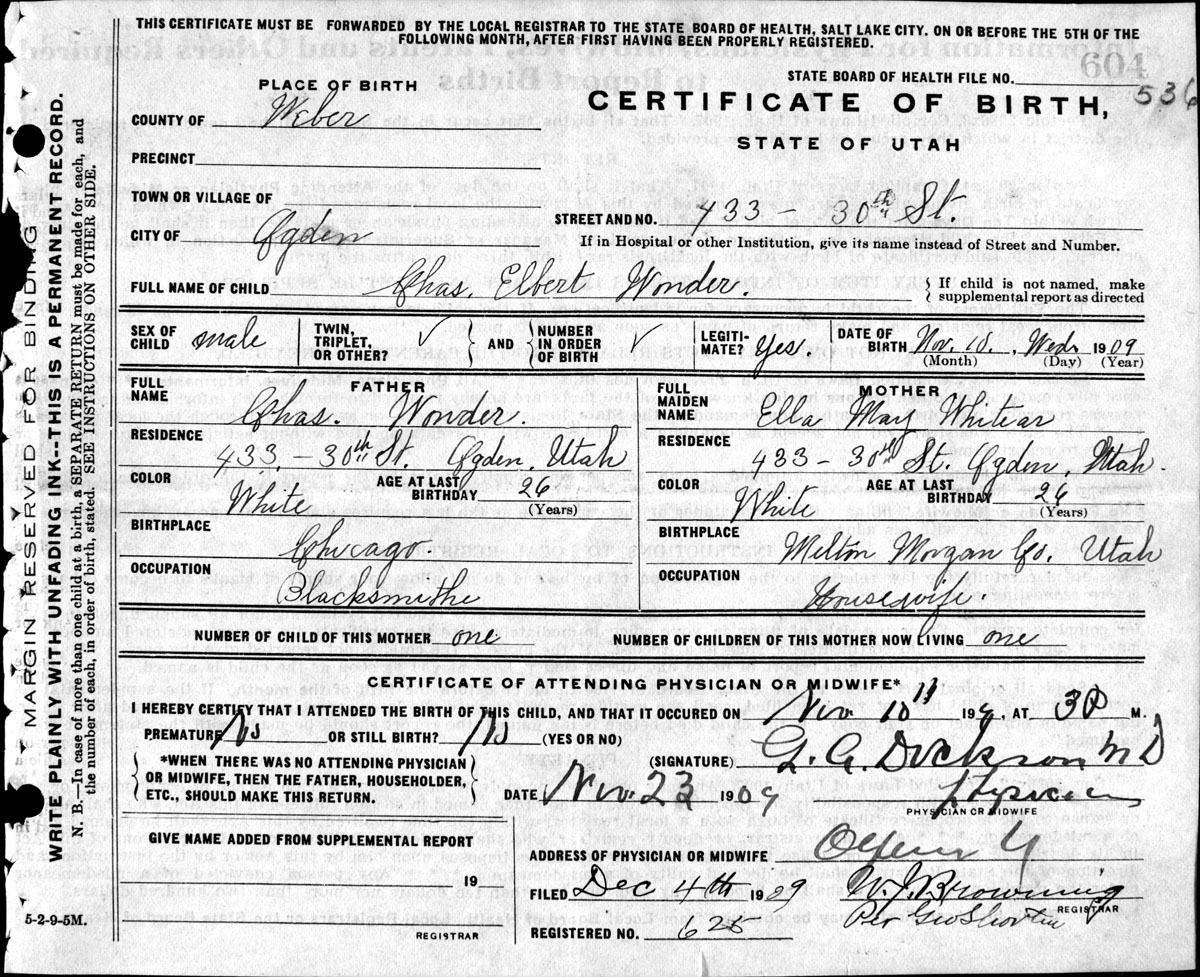 THIS CERTIFICATE MUST BE FORWARDED BY THE LOCAL REGISTRAR TO THE STATE BOARD OF HEALTH, SALT LAKE CITY. ON OR BEFORE THE 5TH OF THE
FOLLOWING MONTH, AFTER FIRST HAVING BEEN PROPERLY REGISTERED.
604
STATE BOARD OF HEALTH FILE NO. 536
PLACE OF BIRTH
CERTIFICATE OF BIRTH,
STATE OF UTAH
COUNTY OF Weber
PRECINCT
TOWN OR VILLAGE OF
STREET AND NO. 433 30th St.
CITY OF Ogden
If in Hospital or other Institution, give its name instead of Street and Number.
FULL NAME OF CHILD Chas. Elbert Wonder.
{ If child is not named, make
supplemental report as directed
SEX OF CHILD male
TWIN, TRIPLET, OR OTHER? ✓
{ AND } NUMBER IN ORDER OF BIRTH ✓
LEGITI-MATE? Yes
DATE OF BIRTH Nov. 10. , Wed. 1909
(Month) (Day) (Year)
FATHER
FULL NAME Chas. Wonder.
RESIDENCE 433 - 30th St. Ogden, Utah
COLOR White
AGE AT LAST BIRTHDAY 26
(Years)
BIRTHPLACE Chicago
OCCUPATION Blacksmithe
MOTHER
FULL MAIDEN NAME Ella May Whitear
RESIDENCE 433 - 30th St. Ogden, Utah.
COLOR White
AGE AT LAST BIRTHDAY 26
(Years)
BIRTHPLACE Milton Morgan Co. Utah
OCCUPATION Housewife.
NUMBER OF CHILD OF THIS MOTHER one
NUMBER OF CHILDREN OF THIS MOTHER NOW LIVING one
CERTIFICATE OF ATTENDING PHYSICIAN OR MIDWIFE*
I HEREBY CERTIFY THAT I ATTENDED THE BIRTH OF THIS CHILD, AND THAT IT OCCURED ON Nov 10 " 1909, AT 3P M.
PREMATURE No OR STILL BIRTH? No (YES OR NO)
(SIGNATURE) Dickson MD
{ *WHEN THERE WAS NO ATTENDING PHYSICIAN
OR MIDWIFE, THEN THE FATHER, HOUSEHOLDER,
ETC., SHOULD MAKE THIS RETURN. }
DATE Nov. 23 1909
Physician
PHYSICIAN OR MIDWIFE
GIVE NAME ADDED FROM SUPPLEMENTAL REPORT
19
REGISTRAR
ADDRESS OF PHYSICIAN OR MIDWIFE Ogden U
FILED Dec 4th 1909
W. J. Browning
REGISTRAR
Per Geo
REGISTERED NO. 628
5-2-9-5M.
MARGIN RESERVED FOR BINDING
WRITE PLAINLY WITH UNFADING INK--THIS IS A PERMANENT RECORD.
N. B.—In case of more than one child at a birth, a SEPARATE RETURN must be made for each, and
the number of each, in order of birth, stated. SEE INSTRUCTIONS ON OTHER SIDE.